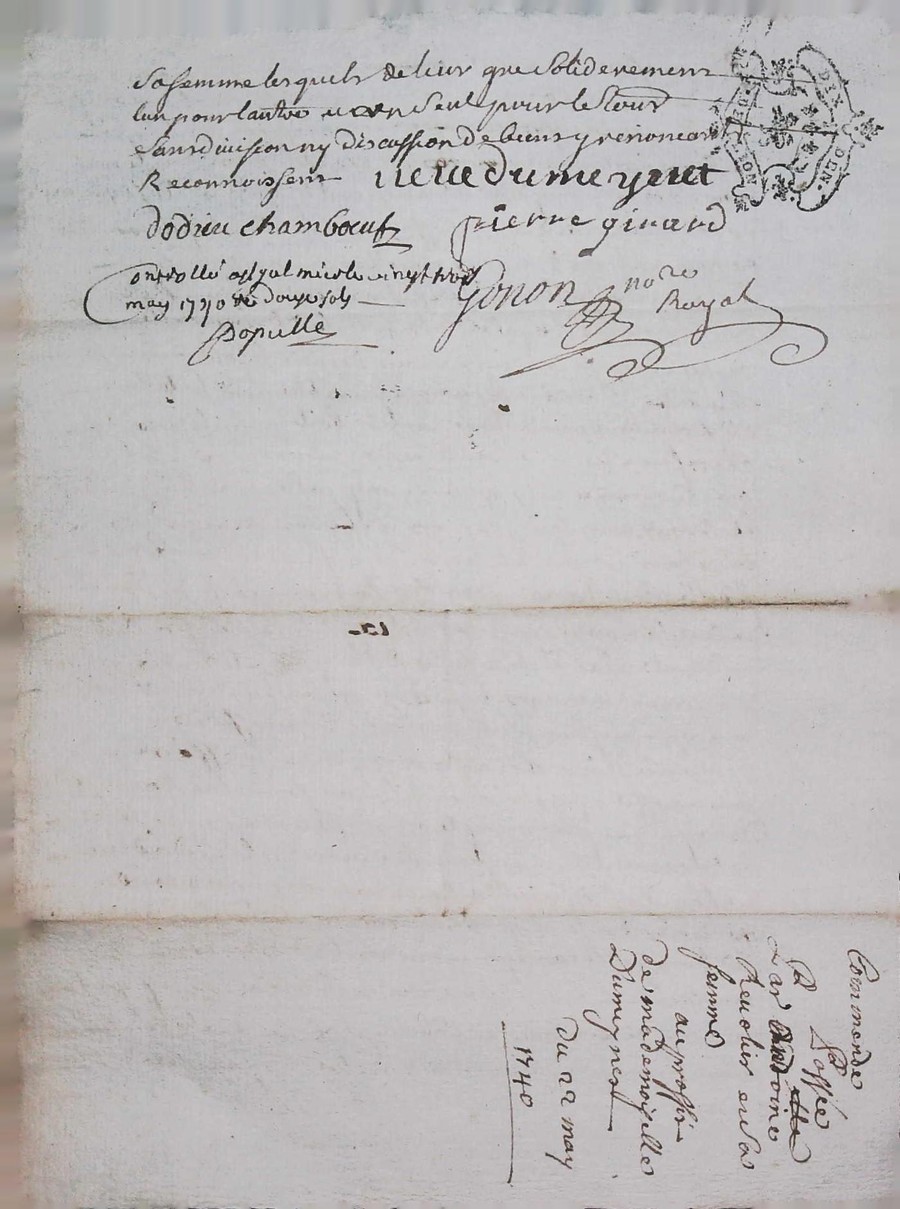 sa femme lesquels de leur gre soliderement
lun pour lautre un seul pour le tout
sans division ny discussion de biens y renoncant
Reconnoissent
dumeynet
dodieu chambœuf
pierre girard
Controllé a st gal mier le vingt trois
may 1740 Rc douze sols
Populle
Gonon nore
Royal
DIX DEN.
Commande
Passée
Par Antoine
Reuolier en sa
femme
au proffit
de mademoiselle
Dumeynet
du 22 may
1740